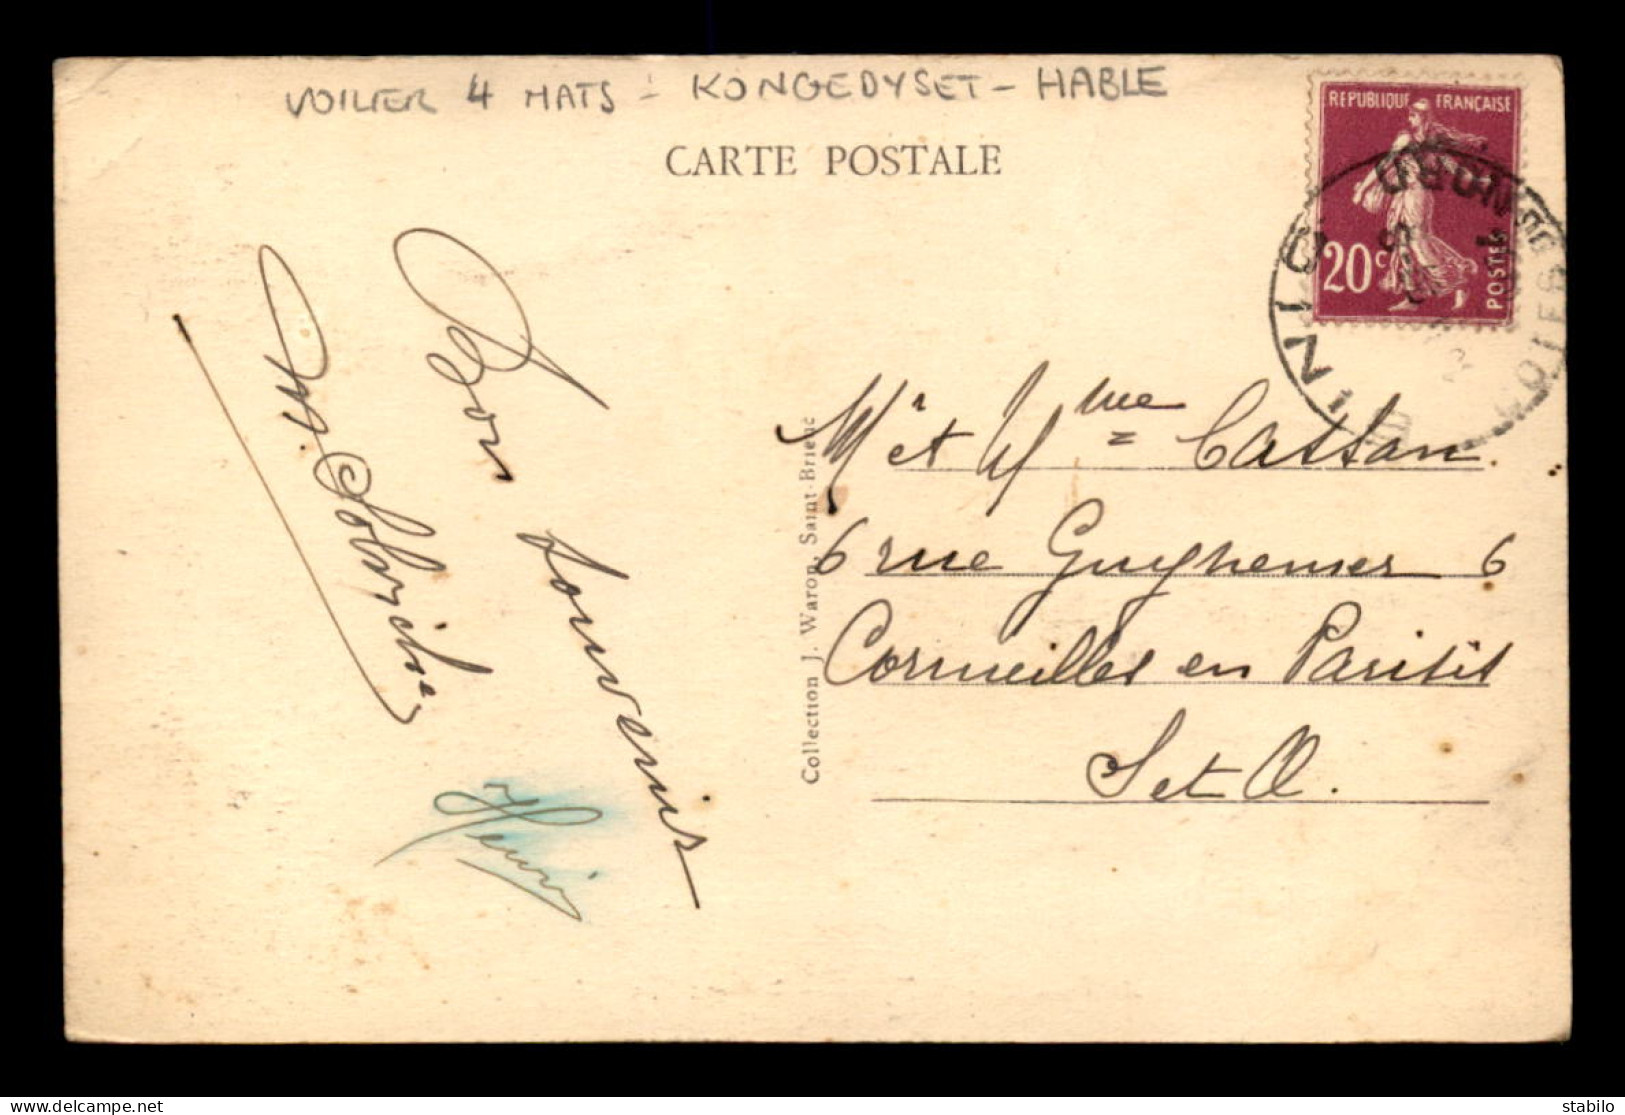 VOILIER 4 MATS - KONGEDYSET - HABLE
CARTE POSTALE
REPUBLIQUE FRANÇAISE
20c
POSTES
Bon souvenir
Henri
Collection J. Waron, Saint-Brieuc
Mr et Mme Cassan
6 rue Guynemer 6
Cormeilles en Parisis
S et O.
stabilo